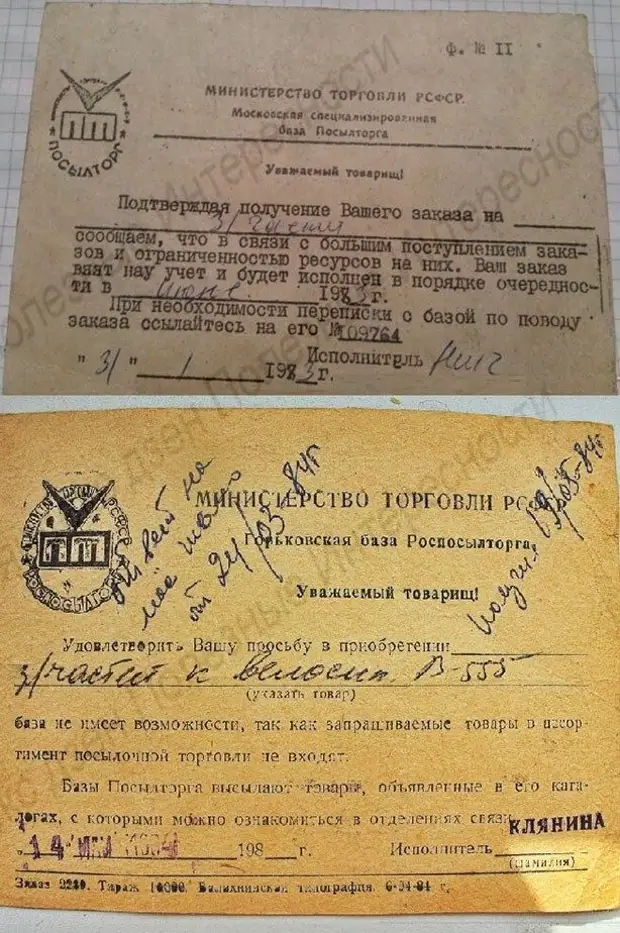 Ф. № II
ПОСЫЛТОРГ
МИНИСТЕРСТВО ТОРГОВЛИ РСФСР
Московская специализированная
база Посылторга
Уважаемый товарищ!
Подтверждая получение Вашего заказа на
З/части
сообщаем, что в связи с большим поступлением зака-
зов и ограниченностью ресурсов на них. Ваш заказ
взят на учет и будет исполнен в порядке очереднос-
ти в июне 1983 г.
При необходимости переписки с базой по поводу
заказа ссылайтесь на его № 109764
"31" 1 1983 г. Исполнитель
РОСПОСЫЛТОРГ
МИНИСТЕРСТВО ТОРГОВЛИ РСФСР
Горьковская база Роспосылторга
Уважаемый товарищ!
ответ на
мое
от 24/03-84г
получил 19/05-84г
Удовлетворить Вашу просьбу в приобретении
з/частей к велосип. В-555
(указать товар)
база не имеет возможности, так как запрашиваемые товары в ассор-
тимент посылочной торговли не входят.
Базы Посылторга высылают товары, объявленные в его ката-
логах, с которыми можно ознакомиться в отделениях связи.
КЛЯНИНА
14 МАЙ 1984 198 г. Исполнитель
(фамилия)
Заказ 2230. Тираж 10000. Балахнинская типография. 6-04-84 г.